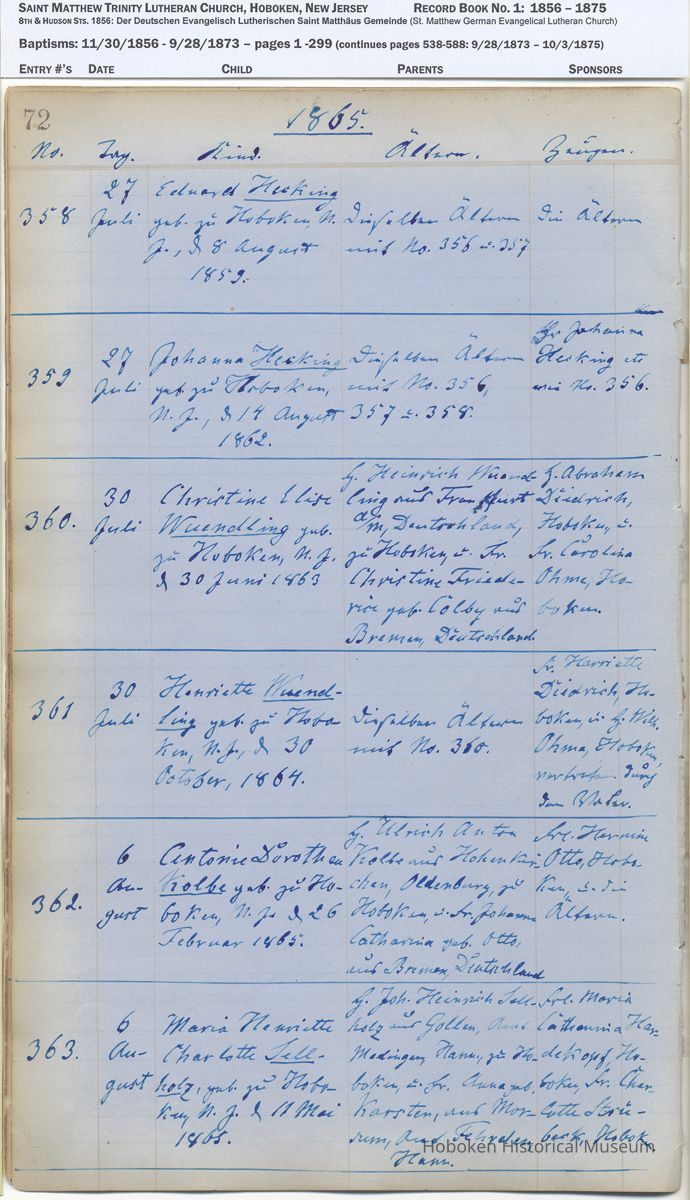 SAINT MATTHEW TRINITY LUTHERAN CHURCH, HOBOKEN, NEW JERSEY RECORD BOOK NO. 1: 1856 – 1875
8TH & HUDSON STS. 1856: Der Deutschen Evangelisch Lutherischen Saint Matthäus Gemeinde (St. Matthew German Evangelical Lutheran Church)
Baptisms: 11/30/1856 - 9/28/1873 – pages 1 -299 (continues pages 538-588: 9/28/1873 – 10/3/1875)
ENTRY #'S DATE CHILD PARENTS SPONSORS
72
1865.
No. Tag. Kind. Ältern. Zeugen.
358
27
Juli
Eduard Hesking
geb. zu Hoboken, N.
J., d 8 August
1859.
Dieselben Ältern
mit No. 356 u. 357
Die Ältern
359
27
Juli
Johanna Hesking
geb. zu Hoboken,
N. J., d 14 August
1862.
Dieselben Ältern
mit No. 356,
357 u. 358.
Fr. Johanna
Hesking etc
wie No. 356.
360.
30
Juli
Christine Elise
Wuendling geb.
zu Hoboken, N. J.
d 30 Juni 1863
H. Heinrich Wuend
ling aus Frankfurt
a/m, Deutschland,
zu Hoboken, u. Fr.
Christine Friede-
rice geb. Cölby aus
Bremen, Deutschland
H. Abraham
Diedrich,
Hoboken, u.
Fr. Carolina
Ohme, Ho-
boken.
361
30
Juli
Henriette Wuend-
ling geb. zu Hobo-
ken, N. J., d 30
October, 1864.
Dieselben Ältern
mit No. 360.
Fr. Harriette
Diedrich, Ho-
boken, u. H. Wilh.
Ohma, Hoboken,
vertreten durch
den Vater.
362.
6
Au-
gust
Antonie Dorothea
Kolbe geb. zu Ho-
boken, N. J. d 26
Februar 1865.
H. Ulrich Anton
Kolbe aus Hohenkir-
chen, Oldenburg, zu
Hoboken, u. Fr. Johanna
Catharina geb. Otto,
aus Bremen, Deutschland
Frl. Hermine
Otto, Hobo-
ken, u. die
Ältern.
363.
6
Au-
gust
Maria Henriette
Charlotte Sell-
holz, geb. zu Hobo-
ken, N. J. d 11 Mai
1865.
H. Joh. Heinrich Sell-
holz aus Gollen, Amt
Medingen, Hann, zu Ho-
boken, u. Fr. Anna geb.
Karsten, aus Mor-
sum, Amt
Hann.
Frl. Maria
Catharina Har-
dekopf, Ho-
boken Fr. Char-
lotte Stru-
beck, Hoboken
Hoboken Historical Museum